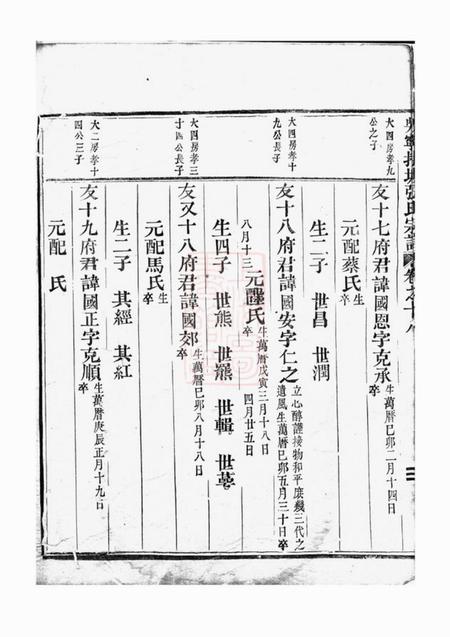 張氏宗譜 卷之十八
大四房孝九
公之子
友十七府君諱國恩字克承 生萬曆己卯二月十四日
卒
元配蔡氏 生
卒
生二子 世昌 世潤
大四房孝十
九公長子
友十八府君諱國安字仁之 立心醇謹接物和平庶幾三代之
遺風生萬曆己卯五月三十日卒
八月十三
元配 氏 生萬曆戊寅三月十八日
卒 四月廿五日
生四子 世熊 世羆 世輯 世
大四房孝三
十四公長子
友又十八府君諱國郊 生萬曆己卯八月十八日
卒
元配馬氏 生
卒
生二子 其經 其紅
大二房孝十
四公三子
友十九府君諱國正字克順 生萬曆庚辰正月十九日
卒
元配 氏